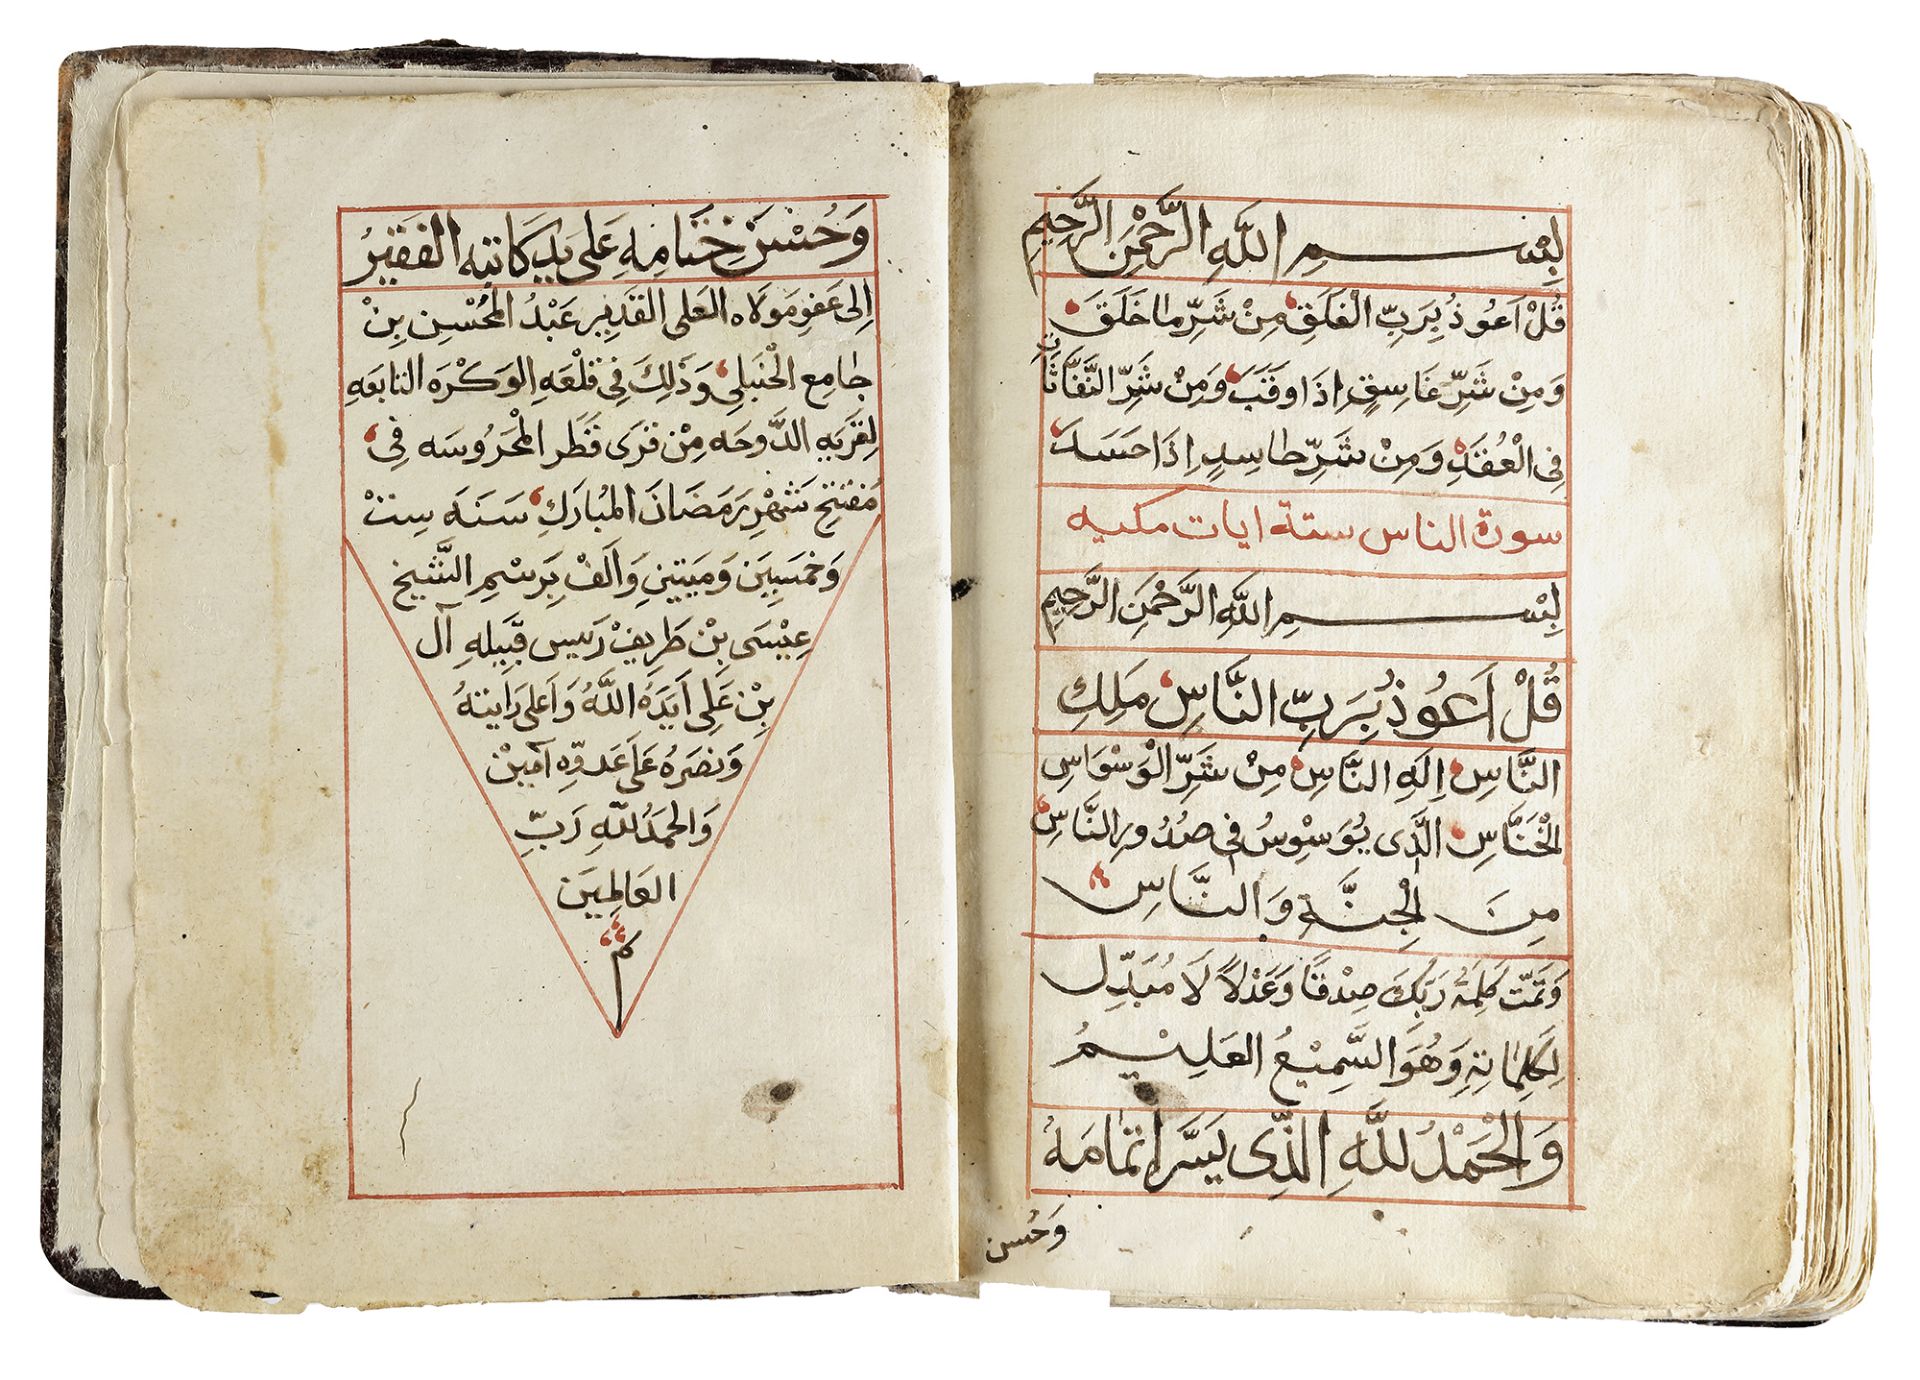 بِسْمِ اللَّهِ الرَّحْمَنِ الرَّحِيمِ
قُلْ اَعُوذُ بِرَبِّ الْفَلَقِ مِنْ شَرِّ مَا خَلَقَ
وَمِنْ شَرِّ غَاسِقٍ اِذَا وَقَبَ وَمِنْ شَرِّ النَّفَّاثَاتِ
فِى الْعُقَدِ وَمِنْ شَرِّ حَاسِدٍ اِذَا حَسَدَ
سورة الناس ستة ايات مكيه
بِسْمِ اللَّهِ الرَّحْمَنِ الرَّحِيمِ
قُلْ اَعُوذُ بِرَبِّ النَّاسِ مَلِكِ
النَّاسِ اِلَهِ النَّاسِ مِنْ شَرِّ الْوَسْوَاسِ
الْخَنَّاسِ الَّذى يُوَسْوِسُ فى صُدُورِ النَّاسِ
مِنَ الْجِنَّةِ وَالنَّاسِ
وَتَمَّتْ كَلِمَةُ رَبِّكَ صِدْقًا وَعَدْلًا لَا مُبَدِّلَ
لِكَلِمَاتِهِ وَهُوَ السَّمِيْعُ العَلِيْمُ
وَالْحَمْدُ لِلَّهِ الَّذِى يَسَّرَ اِتْمَامَهُ
وَحُسن
وَحُسْنَ خِتَامِهِ عَلَى يَدِ كَاتِبِهِ الفَقِيرُ
اِلى عَفْوِ مَوْلَاه العَلى القَدِيرِ عَبْدُ المُحْسِنِ بِنْ
جَامِع الْحَنْبَلِى وَذَلِكَ فِى قَلْعَهِ الوَكْرَه التابعَهِ
لِقَرْيَهِ الدَّوحَه مِنْ قرَى قَطَر المَحْرُوسَه فِى
مُفْتَتَحِ شَهْرِ رَمَضَانَ المُبَارَكِ سَنَةَ سِتْ
وَخَمْسِينَ وَمِيَتِينِ وَاَلفْ بِرَسْمِ الشَّيخ
عِيْسَى بِنْ طَرِيفْ رَييس قَبِيلهِ آل
بِنْ عَلِى اَيَّدَهُ اللَّهُ وَاَعلى رَايتهُ
وَنَصَرَهُ عَلَى عَدوِّه آمينْ
وَالحَمدُ للَّهِ رَبِّ
العَالمِينَ
م